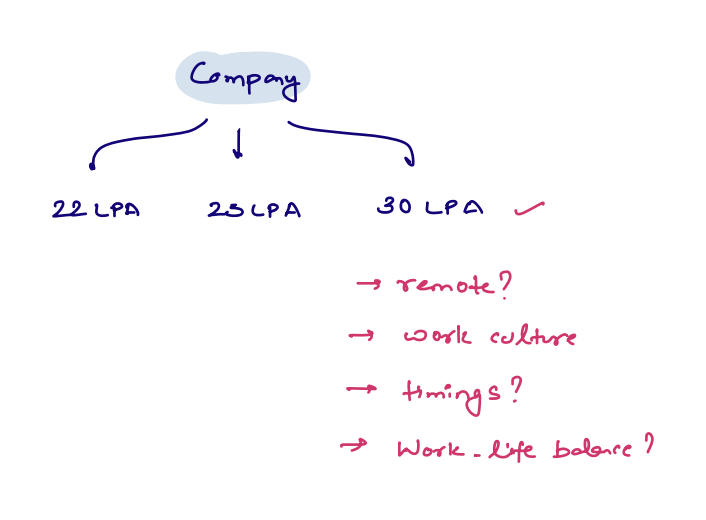 Company
22 LPA 25 LPA 30 LPA ✓
→ remote?
→ work culture
→ timings?
→ Work-life balance?